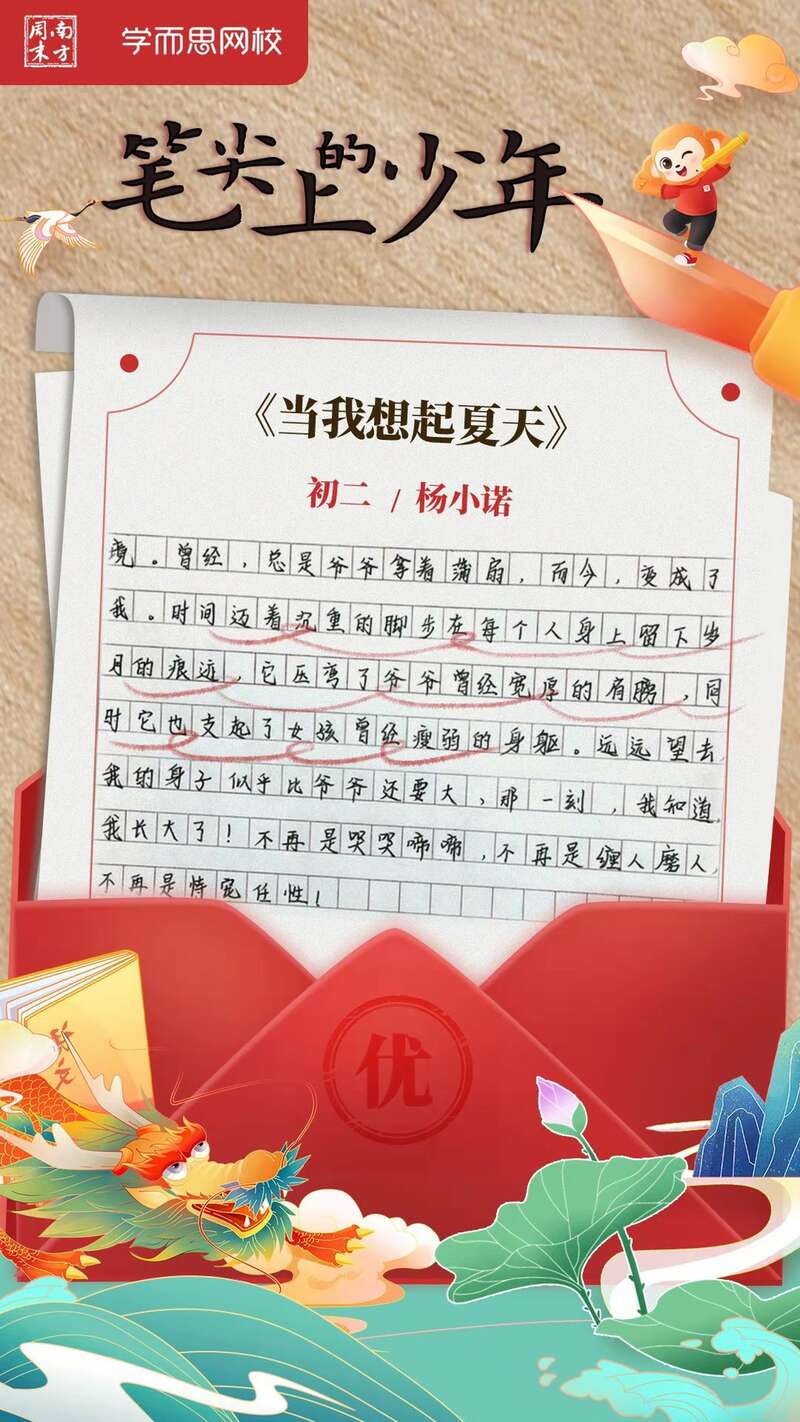 南方周末
学而思网校
笔尖上的少年
《当我想起夏天》
初二 / 杨小诺
境。曾经,总是爷爷拿着蒲扇,而今,变成了
我。时间迈着沉重的脚步在每个人身上留下岁
月的痕迹,它压弯了爷爷曾经宽厚的肩膀,同
时它也支起了女孩曾经瘦弱的身躯。远远望去,
我的身子似乎比爷爷还要大,那一刻,我知道,
我长大了!不再是哭哭啼啼,不再是缠人磨人,
不再是恃宠任性!
优